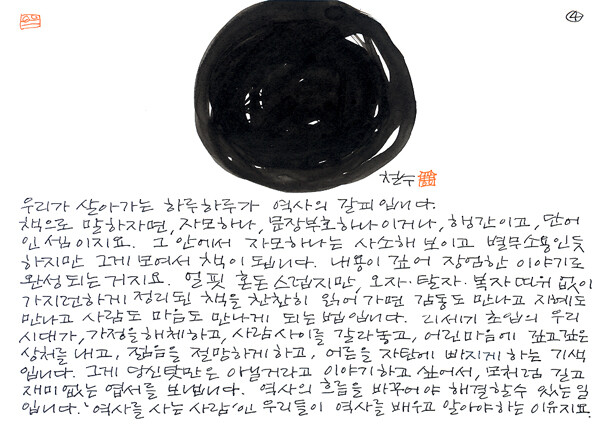 ④
철수
우리가 살아가는 하루하루가 역사의 갈피입니다.
책으로 말하자면, 자모하나, 문장부호하나이거나, 행간이고, 단어
인 셈이지요. 그 안에서 자모하나는 사소해 보이고 별무소용인듯
하지만 그게 모여서 책이 됩니다. 내용이 깊어 장엄한 이야기로
완성되는거지요. 얼핏 혼돈스럽지만, 오자·탈자·복자 따위 없이
가지런하게 정리된 책을 찬찬히 읽어가면 감동도 만나고 지혜도
만나고 사람도 마음도 만나게 되는 법입니다. 21세기 초입의 우리
시대가, 가정을 해체하고, 사람사이를 갈라놓고, 어린마음에 깊고깊은
상처를 내고, 젊음을 절망하게 하고, 어른을 자탄에 빠지게 하는 기색
입니다. 그게 당신탓만은 아닐거라고 이야기하고 싶어서, 모처럼 길고
재미없는 엽서를 보냅니다. 역사의 흐름을 바꾸어야 해결할수 있는 일
입니다. '역사를 사는 사람'인 우리들이 역사를 배우고 알아야하는 이유지요.